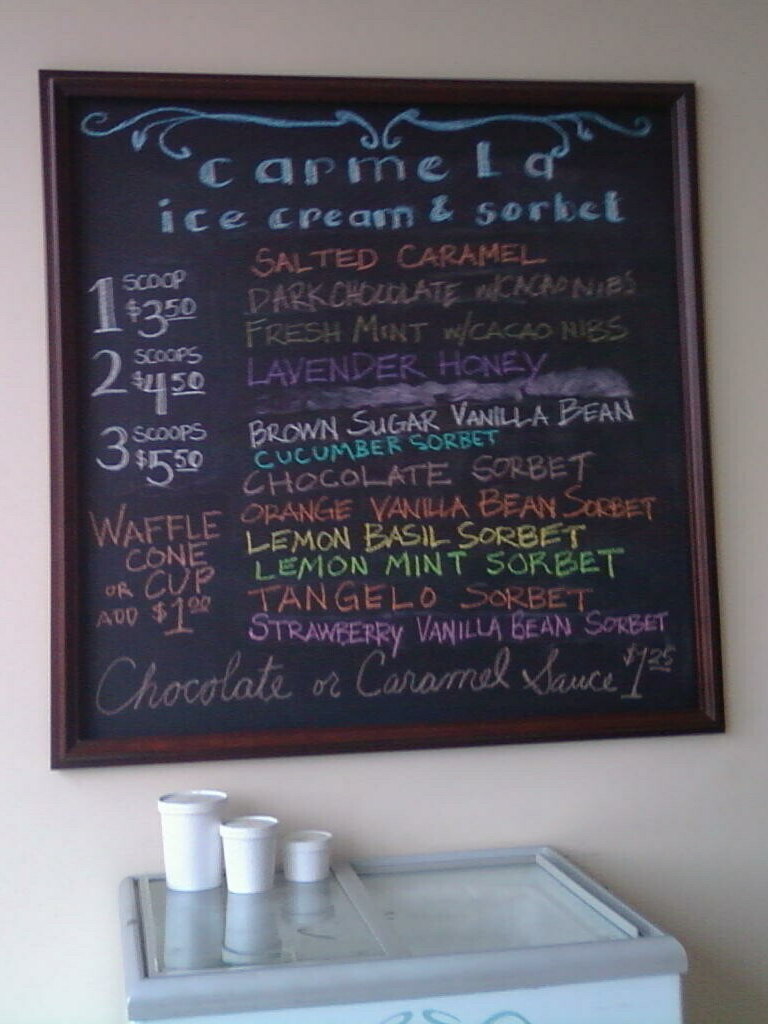 carmela
ice cream & sorbet
1 SCOOP $3.50
2 SCOOPS $4.50
3 SCOOPS $5.50
WAFFLE
CONE
OR CUP
ADD $1.00
SALTED CARAMEL
DARK CHOCOLATE W/CACAO NIBS
FRESH MINT W/CACAO NIBS
LAVENDER HONEY
BROWN SUGAR VANILLA BEAN
CUCUMBER SORBET
CHOCOLATE SORBET
ORANGE VANILLA BEAN SORBET
LEMON BASIL SORBET
LEMON MINT SORBET
TANGELO SORBET
STRAWBERRY VANILLA BEAN SORBET
Chocolate or Caramel Sauce $1.25